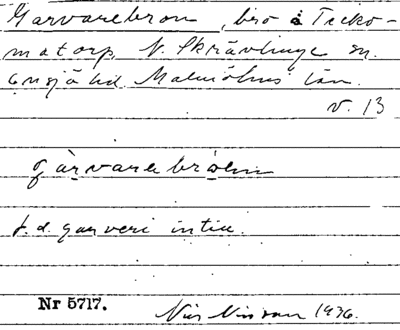 Garvarebron, bro å Tecko-
matorp, N. Skrävlinge sn.
Onsjö hd Malmöhus län.
v. 13
gàrvarebróen
f.d. garveri intill.
Nr 5717. Nils Nilsson 1936.